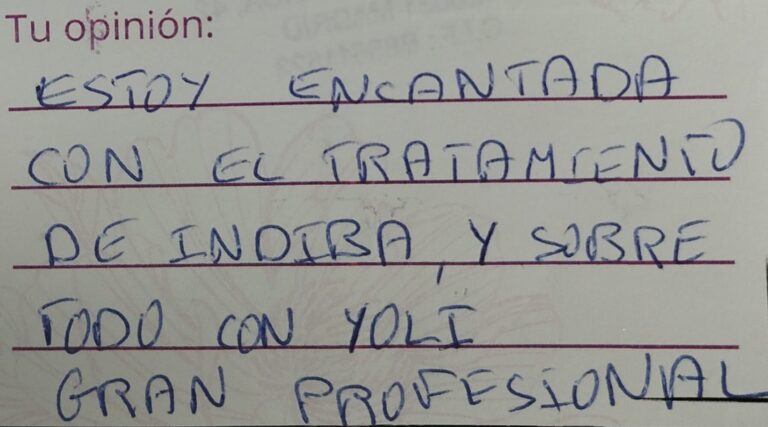 Tu opinión:
ESTOY ENCANTADA
CON EL TRATAMIENTO
DE INDIBA, Y SOBRE
TODO CON YOLI
GRAN PROFESIONAL